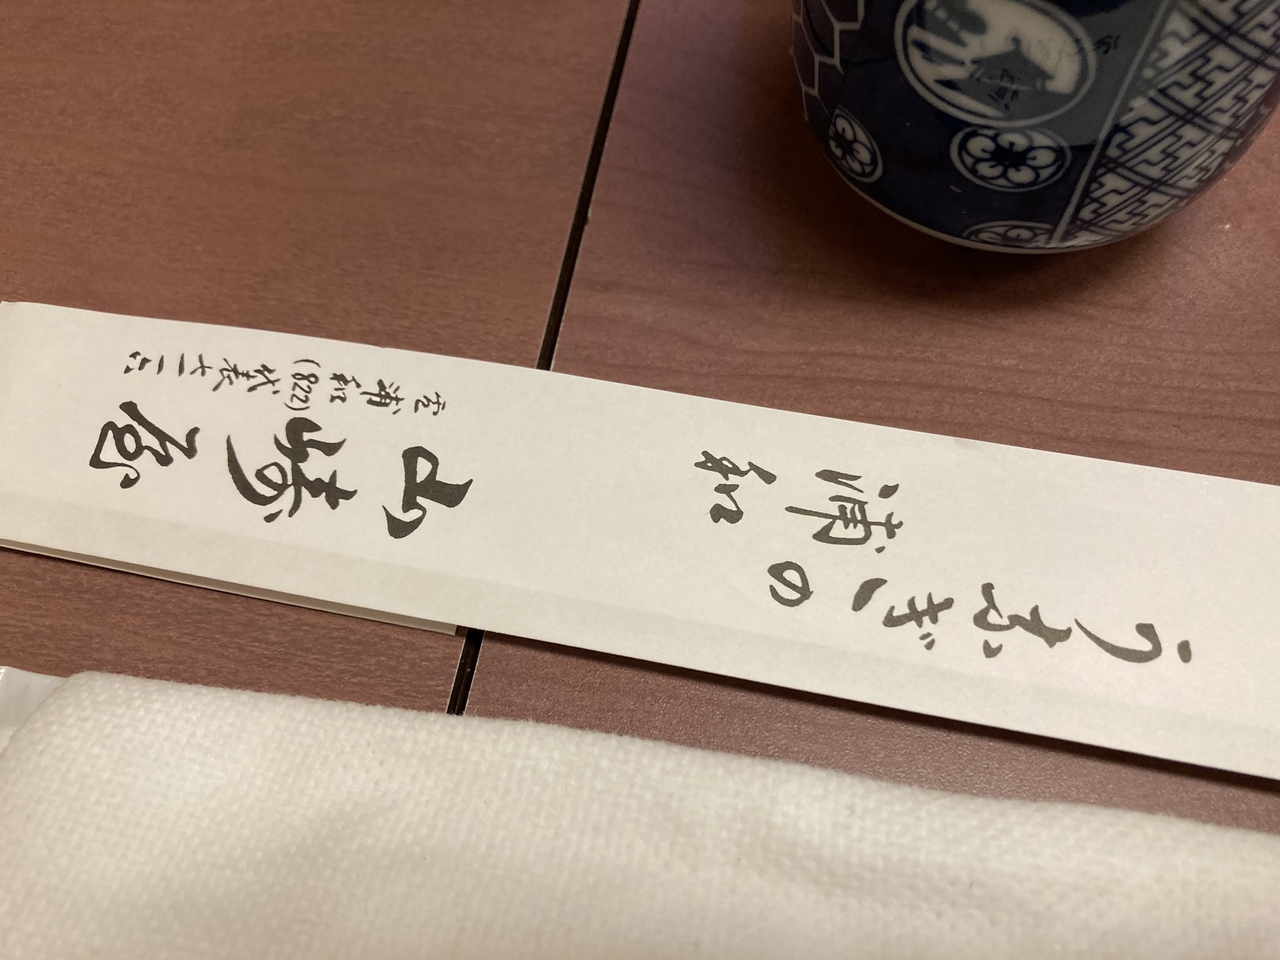 うなぎの
浦和
山崎屋
電浦和(822)代表七一二六